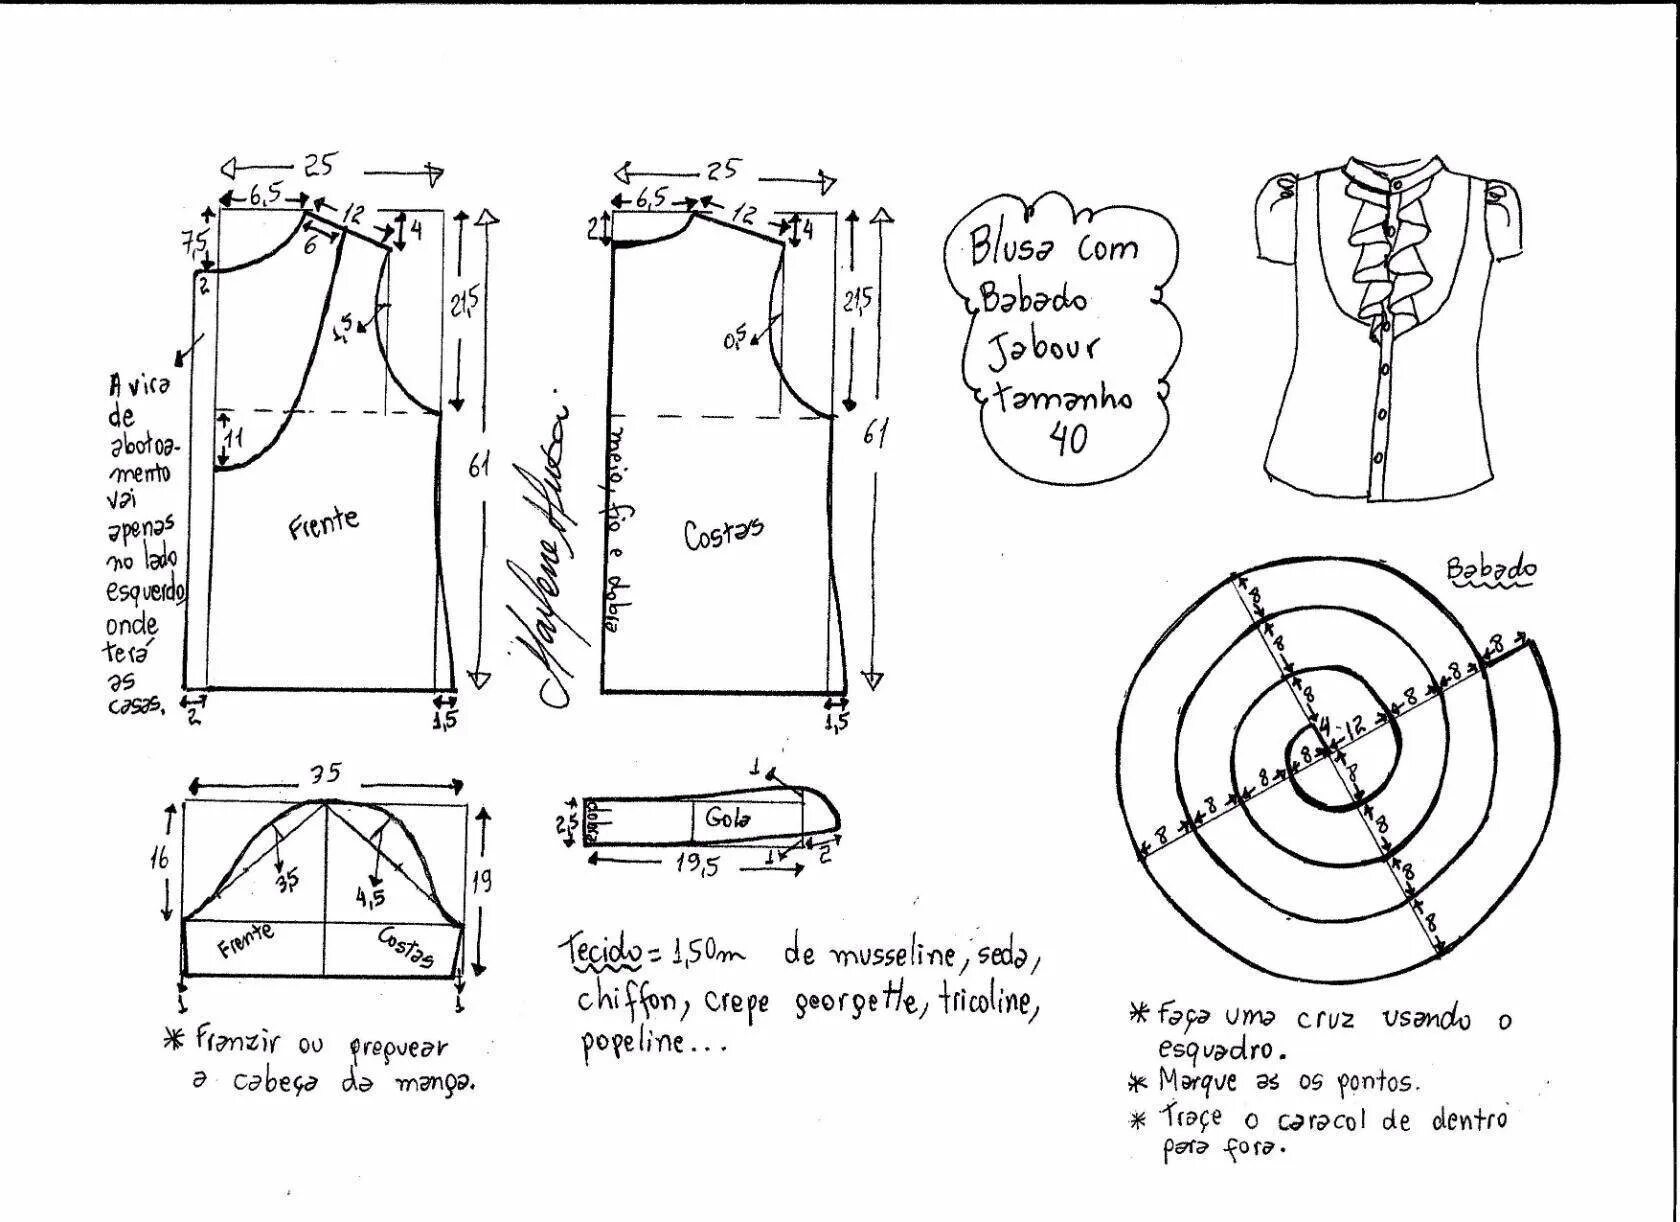 25
6,5
12
4
6
7,5
2
1,5
21,5
61
11
A vira
de
abotoa-
mento
vai
apenas
no lado
esquerdo
onde
terá
as
casas.
Frente
2
1,5
Marlene Mukai.
25
6,5
12
2
4
0,5
21,5
61
meio, fio e dobra
Costas
1,5
Blusa com
Babado
Jabour
tamanho
40
35
16
3,5
4,5
19
Frente
Costas
1
1
* Franzir ou preguear
a cabeça da manga.
1
2,5
dobra
Gola
19,5
1
2
Tecido = 1,50m de musseline, seda,
chiffon, crepe georgette, tricoline,
popeline...
Babado
8
8
8
4
12
8
8
8
8
8
8
8
8
8
8
8
* Faça uma cruz usando o
esquadro.
* Marque as os pontos.
* Trace o caracol de dentro
para fora.